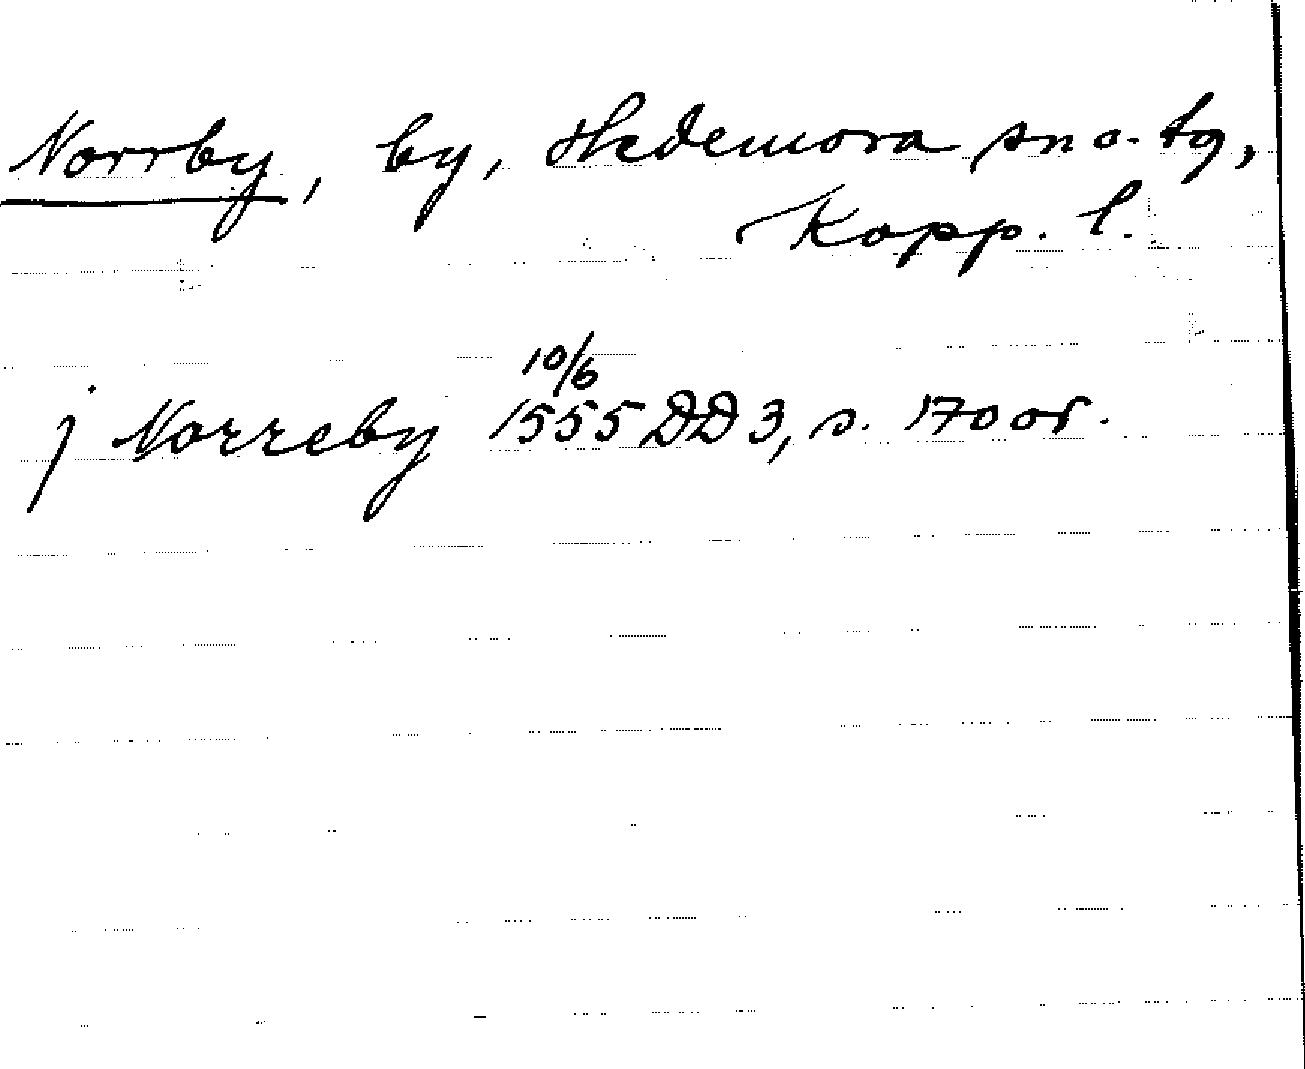 Norrby, by, Hedemora sn o. tg,
Kopp. l.
j Norreby 10/6 1555 DD 3, s. 170 or.